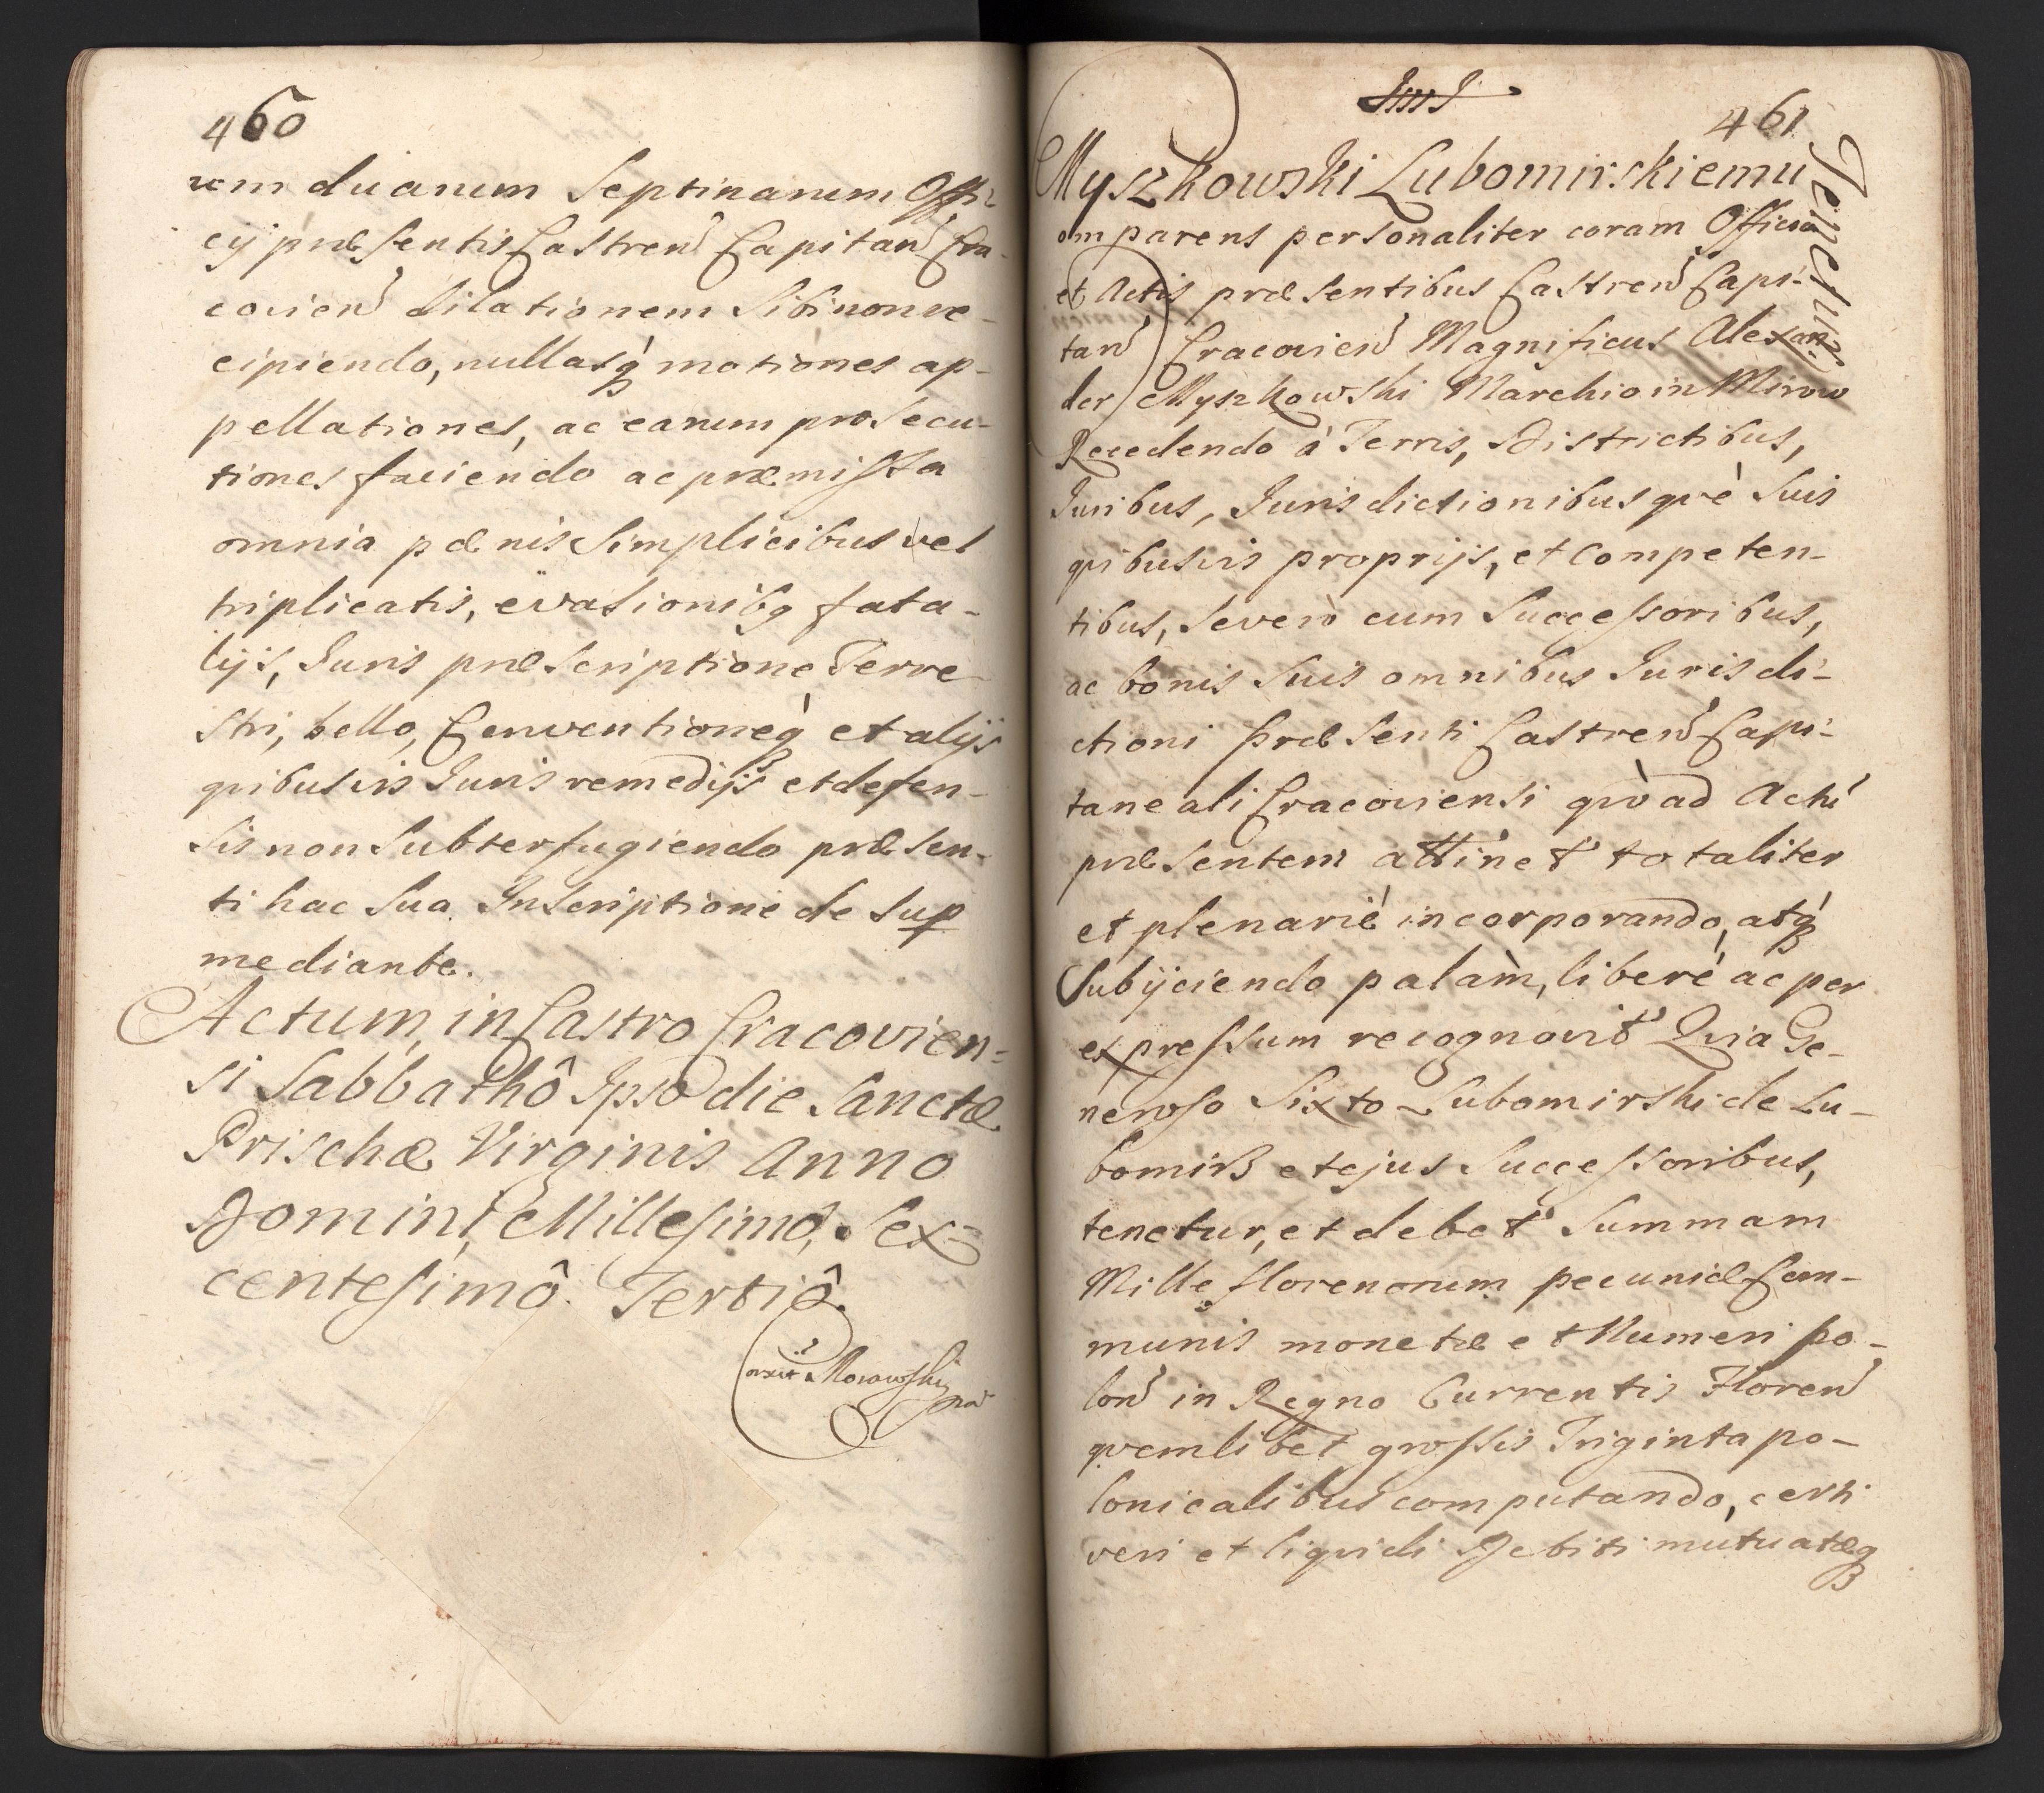 460
rem duarum Septimanarum Offi-
cij præsentis Castren Capitan Cra-
covien dilationem Sibi non re-
cipiendo, nullasq motiones ap-
pellationes, ac earum prosecu-
tiones faciendo ac præmissa
omnia pænis Simplicibus vel
triplicatis, evasionibq fata-
lijs, Juris præscriptione Terre
stri, bello, Conventioneq et alijs
quibusvis Juris remedijs et defen-
sis non Subterfugiendo præsen-
ti hac Sua Inscriptione de sup
mediante.
Actum in Castro Cracovien=
si Sabbathô Ipso die Sanctæ
Prischæ Virginis Anno
Domini Millesimo, Sex=
centesimô Tertiô.
461
Myszkowski Lubomirskiemu
Tenetur
omparens personaliter coram Officio
et Actis præsentibus Castren Capi-
tan Cracovien Magnificus Alexan-
der Myszkowski Marchio in Mirow
Recedendo à Terris, Districtibus,
Juribus, Jurisdictionibusquè Suis
quibusvis proprijs, et Competen-
tibus, Severò cum Successoribus,
ac bonis Suis omnibus Jurisdi-
ctioni Præsenti Castren Capi-
taneali Cracoviensi quòad Actû
præsentem attinet totaliter
et plenariè incorporando, atq
Subijciendo palàm, liberè ac per
expressum recognovit Quia Ge-
neroso Sixto Lubomirski de Lu-
bomirz et ejus Successoribus,
tenetur, et debet Summam
Mille florenorum pecuniæ Com-
munis monetæ et Numeri po-
lon in Regno Currentis Floren
quemlibet grossis Triginta po-
lonicalibus computando, certi
veri et liquidi Debiti mutuatæq